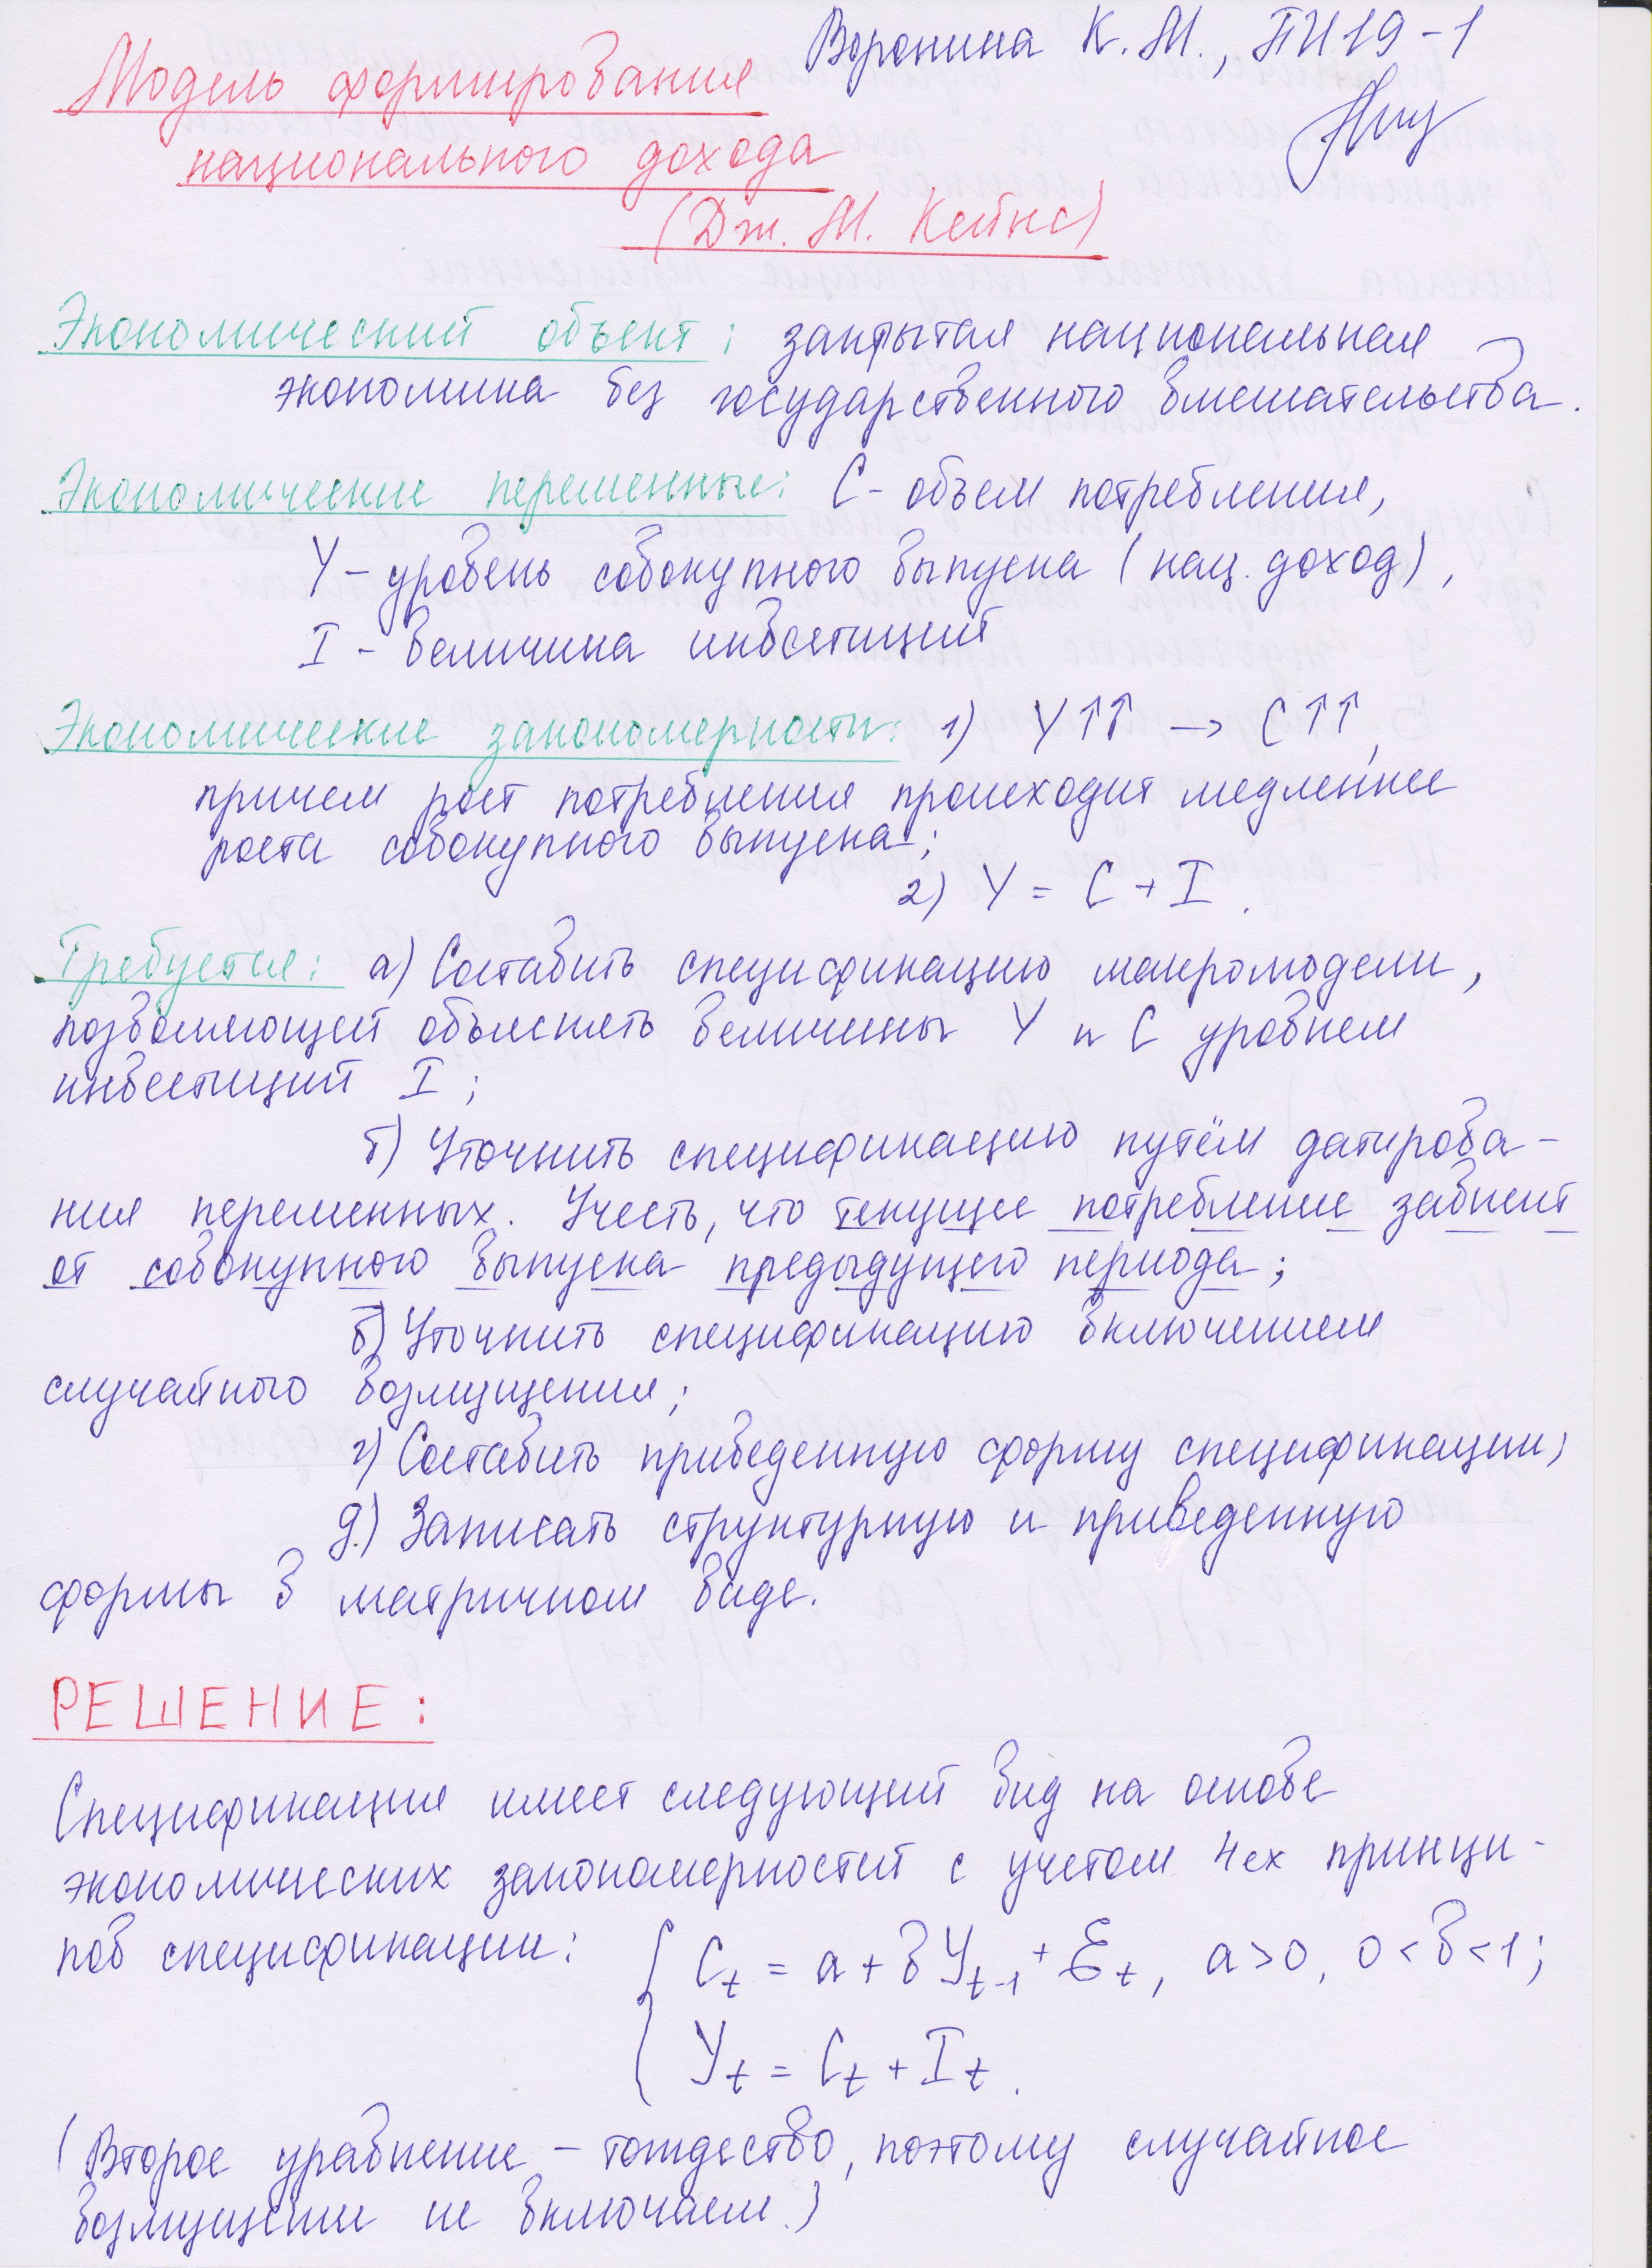 Воронина К. М., ПИ19-1
Модель формирования
национального дохода
(Дж. М. Кейнс)
Экономический объект: закрытая национальная
экономика без государственного вмешательства.
Экономические переменные: C - объем потребления,
Y - уровень совокупного выпуска (нац. доход),
I - величина инвестиций
Экономические закономерности: 1) Y↑↑ → C↑↑,
причем рост потребления происходит медленнее
роста совокупного выпуска;
2) Y = C + I.
Требуется: а) Составить спецификацию макромодели,
позволяющей объяснять величины Y и C уровнем
инвестиций I;
б) Уточнить спецификацию путём датирова-
ния переменных. Учесть, что текущее потребление зависит
от совокупного выпуска предыдущего периода;
в) Уточнить спецификацию включением
случайного возмущения;
г) Составить приведенную форму спецификации;
д) Записать структурную и приведенную
формы в матричном виде.
РЕШЕНИЕ:
Спецификация имеет следующий вид на основе
экономических закономерностей с учетом 4ех принци-
пов спецификации: { Cₜ = a + bYₜ₋₁ + Ɛₜ, a>0, 0<b<1;
Yₜ = Cₜ + Iₜ.
(Второе уравнение - тождество, поэтому случайное
возмущение не включаем.)